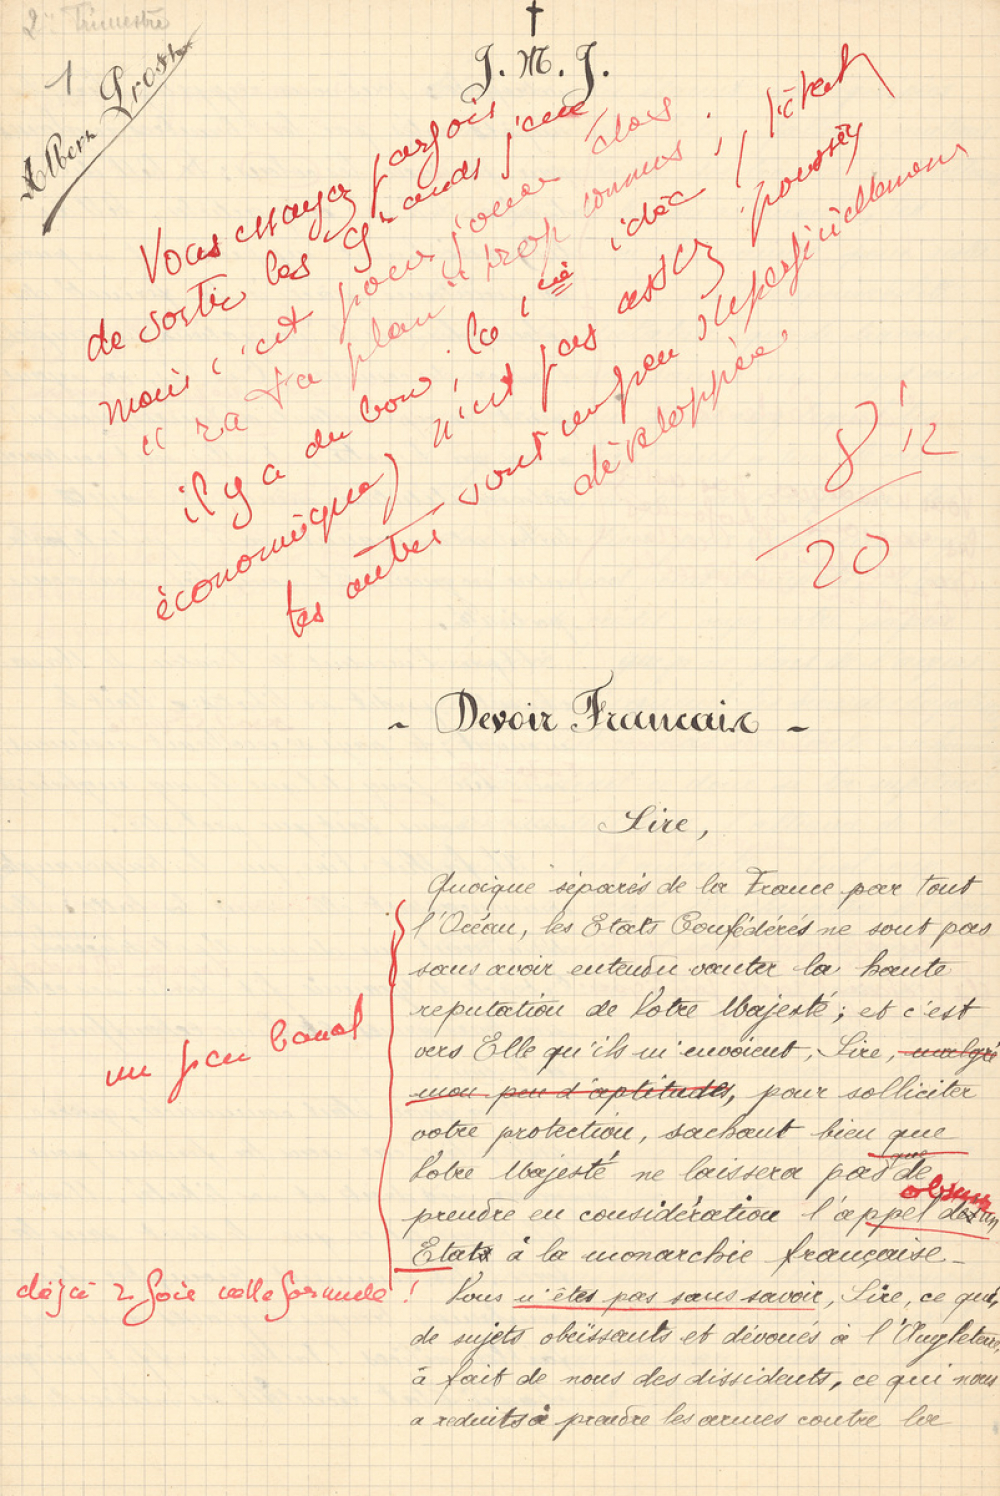 2e Trimestre
1
Albert Prost
J. M. J.
Vous essayez parfois
de sortir les grands jeux
mais c'est pour jouer alors
"ra ta plan" trop connus.
il y a du bon; la 1ère idée (
économique) n'est pas assez poussée,
les autres sont un peu superficiellement
développées
8 1/2
20
- Devoir Francais -
Sire,
Quoique séparés de la France par tout
l'Océan, les Etats Confédérés ne sont pas
sans avoir entendu vanter la haute
reputation de Votre Majesté; et c'est
vers Elle qu'ils m'envoient, Sire, malgré
mon peu d'aptitudes, pour solliciter
un peu banal
votre protection, sachant bien que
Votre Majesté ne laissera pas de
prendre en considération l'appel d'un
Etat à la monarchie française -
déjà 2 fois cette formule!
Vous n'êtes pas sans savoir, Sire, ce qui,
de sujets obéissants et dévoués à l'Angleterre,
a fait de nous des dissidents, ce qui nous
a reduits à prendre les armes contre la